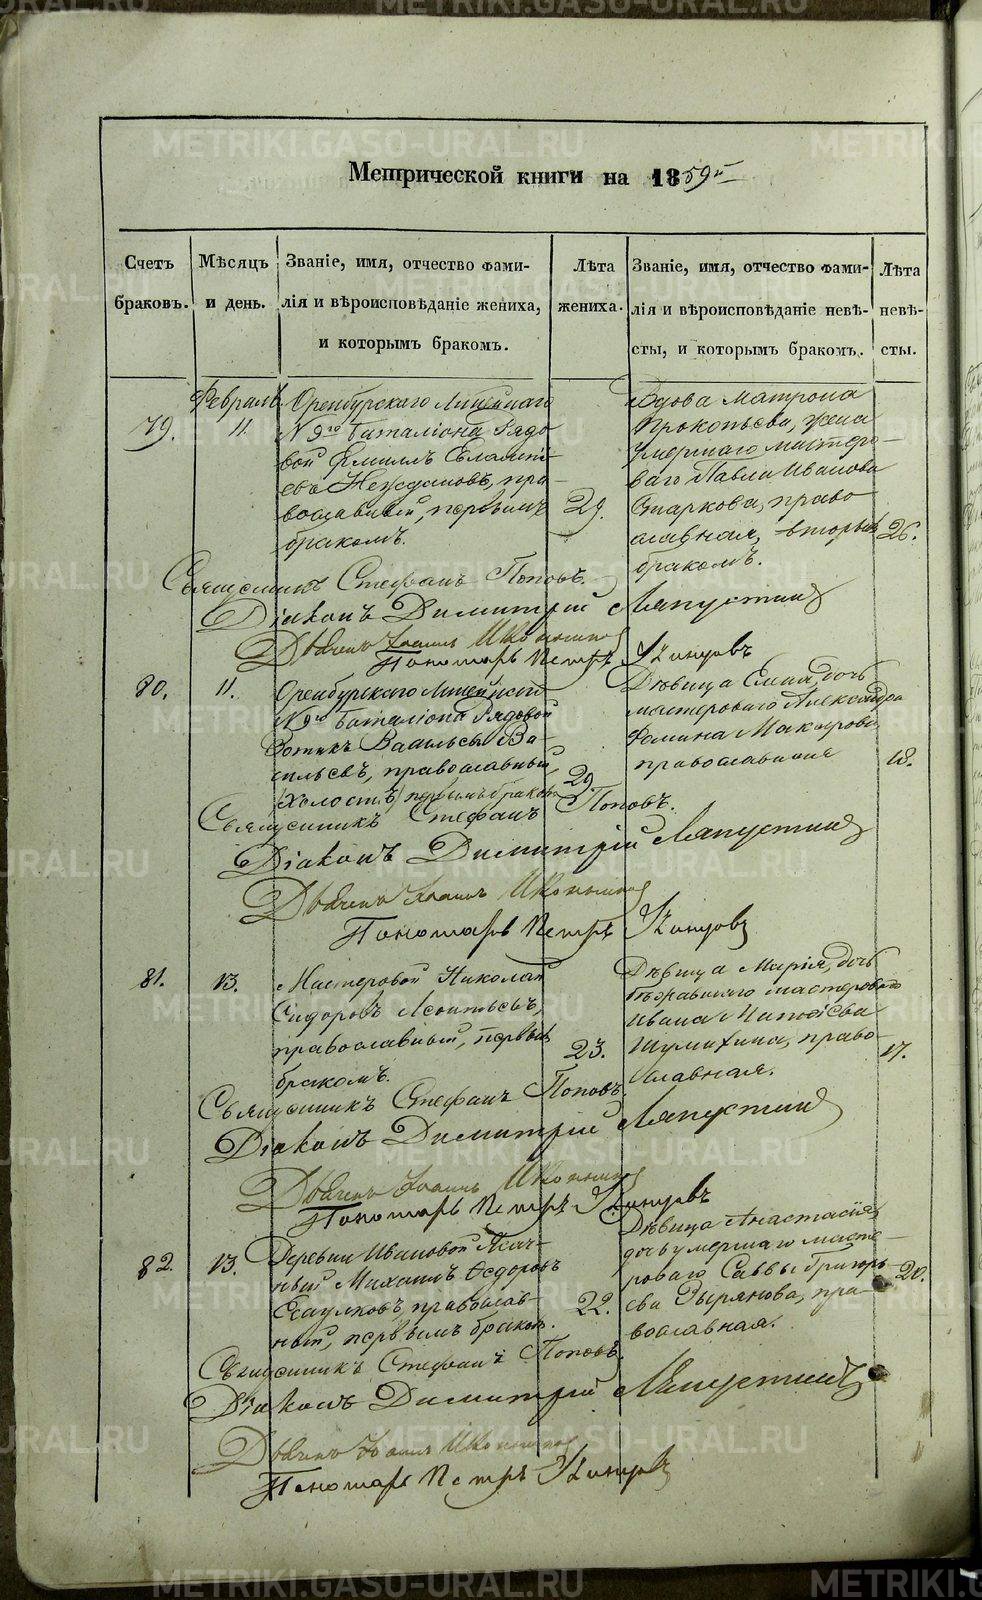 Метрической книги на 1859й
Счетъ браковъ.
Мѣсяцъ и день.
Званіе, имя, отчество фами-
лія и вѣроисповѣданіе жениха,
и которымъ бракомъ.
Лѣта жениха.
Званіе, имя, отчество фами-
лія и вѣроисповѣданіе невѣ-
сты, и которымъ бракомъ.
Лѣта невѣ-
сты.
79.
Февраль
11.
Оренбургскаго Линейнаго
N 9го баталіона Рядо
вой
Неждановъ, пра
вославный, первымъ
бракомъ.
29.
Вдова Матрона
Прокопьева, жена
умершаго мастеро-
ваго Павла Иванова
Старкова, право
славная, вторымъ
бракомъ.
26.
Священникъ Стефанъ Поповъ.
Діаконъ Димитрій Ляпустинъ
Дьячекъ Іоаннъ
Пономарь Петръ
80.
11.
Оренбургскаго Линейнаго
N 9го баталіона Рядовой
Фотикъ Васильевъ Ва-
сильевъ, православный,
(холостъ) первымъ бракомъ
29
Дѣвица дочь
мастероваго Александра
Фомина Макарова
православная
18.
Священникъ Стефанъ Поповъ.
Діаконъ Димитрій Ляпустинъ
Дьячекъ Іоаннъ
Пономарь Петръ
81.
13.
Мастеровой Николай
Сидоровъ Леонтьевъ,
православный, первымъ
бракомъ.
23.
Дѣвица Марія, дочь
мастероваго
Ивана
Шумихина, право-
славная.
17.
Священникъ Стефанъ Поповъ.
Діаконъ Димитрій Ляпустинъ
Дьячекъ Іоаннъ
Пономарь Петръ
82.
13.
Деревни Ивановой
Михаилъ Ѳедоровъ
Есаулковъ, православ-
ный, первымъ бракомъ.
22.
Дѣвица Анастасія,
дочь умершаго масте-
роваго Саввы Григорь-
ева Зырянова, пра-
вославная.
20.
Священникъ Стефанъ Поповъ.
Діаконъ Димитрій Ляпустинъ
Дьячекъ Іоаннъ
Пономарь Петръ
METRIKI.GASO-URAL.RU